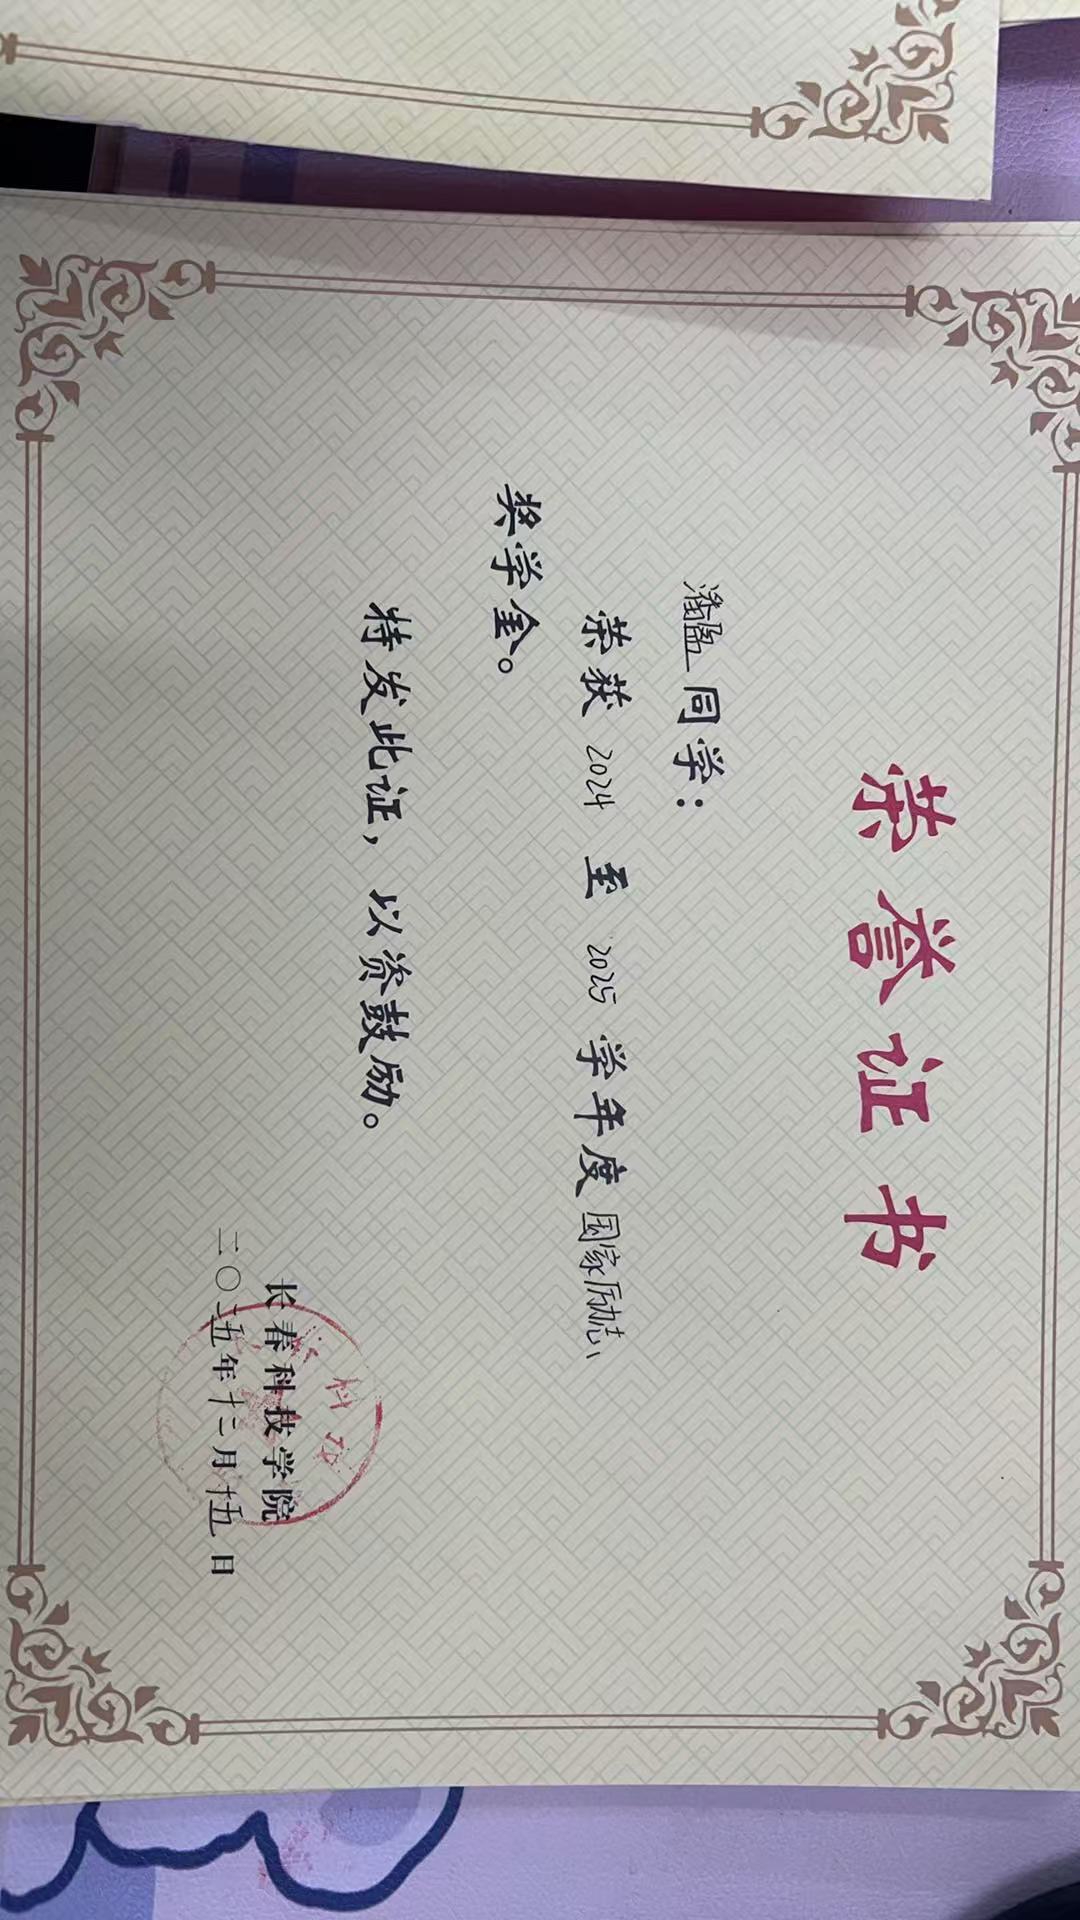 荣誉证书
潘盈同学：
荣获 2024 至 2025 学年度国家励志
奖学金。
特发此证，以资鼓励。
长春科技学院
二〇二五年十二月十五日